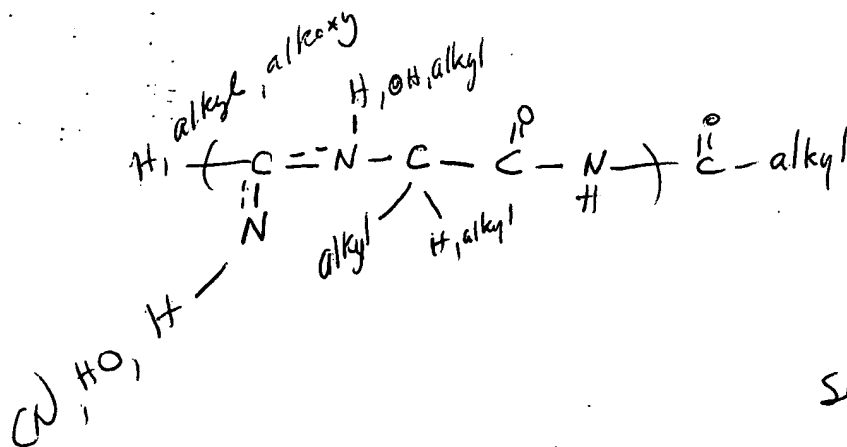 H, alkyl, alkoxy
H, OH, alkyl
O O
( C = N - C - C - N ) C - alkyl
H
N alkyl H, alkyl
CN, HO, H